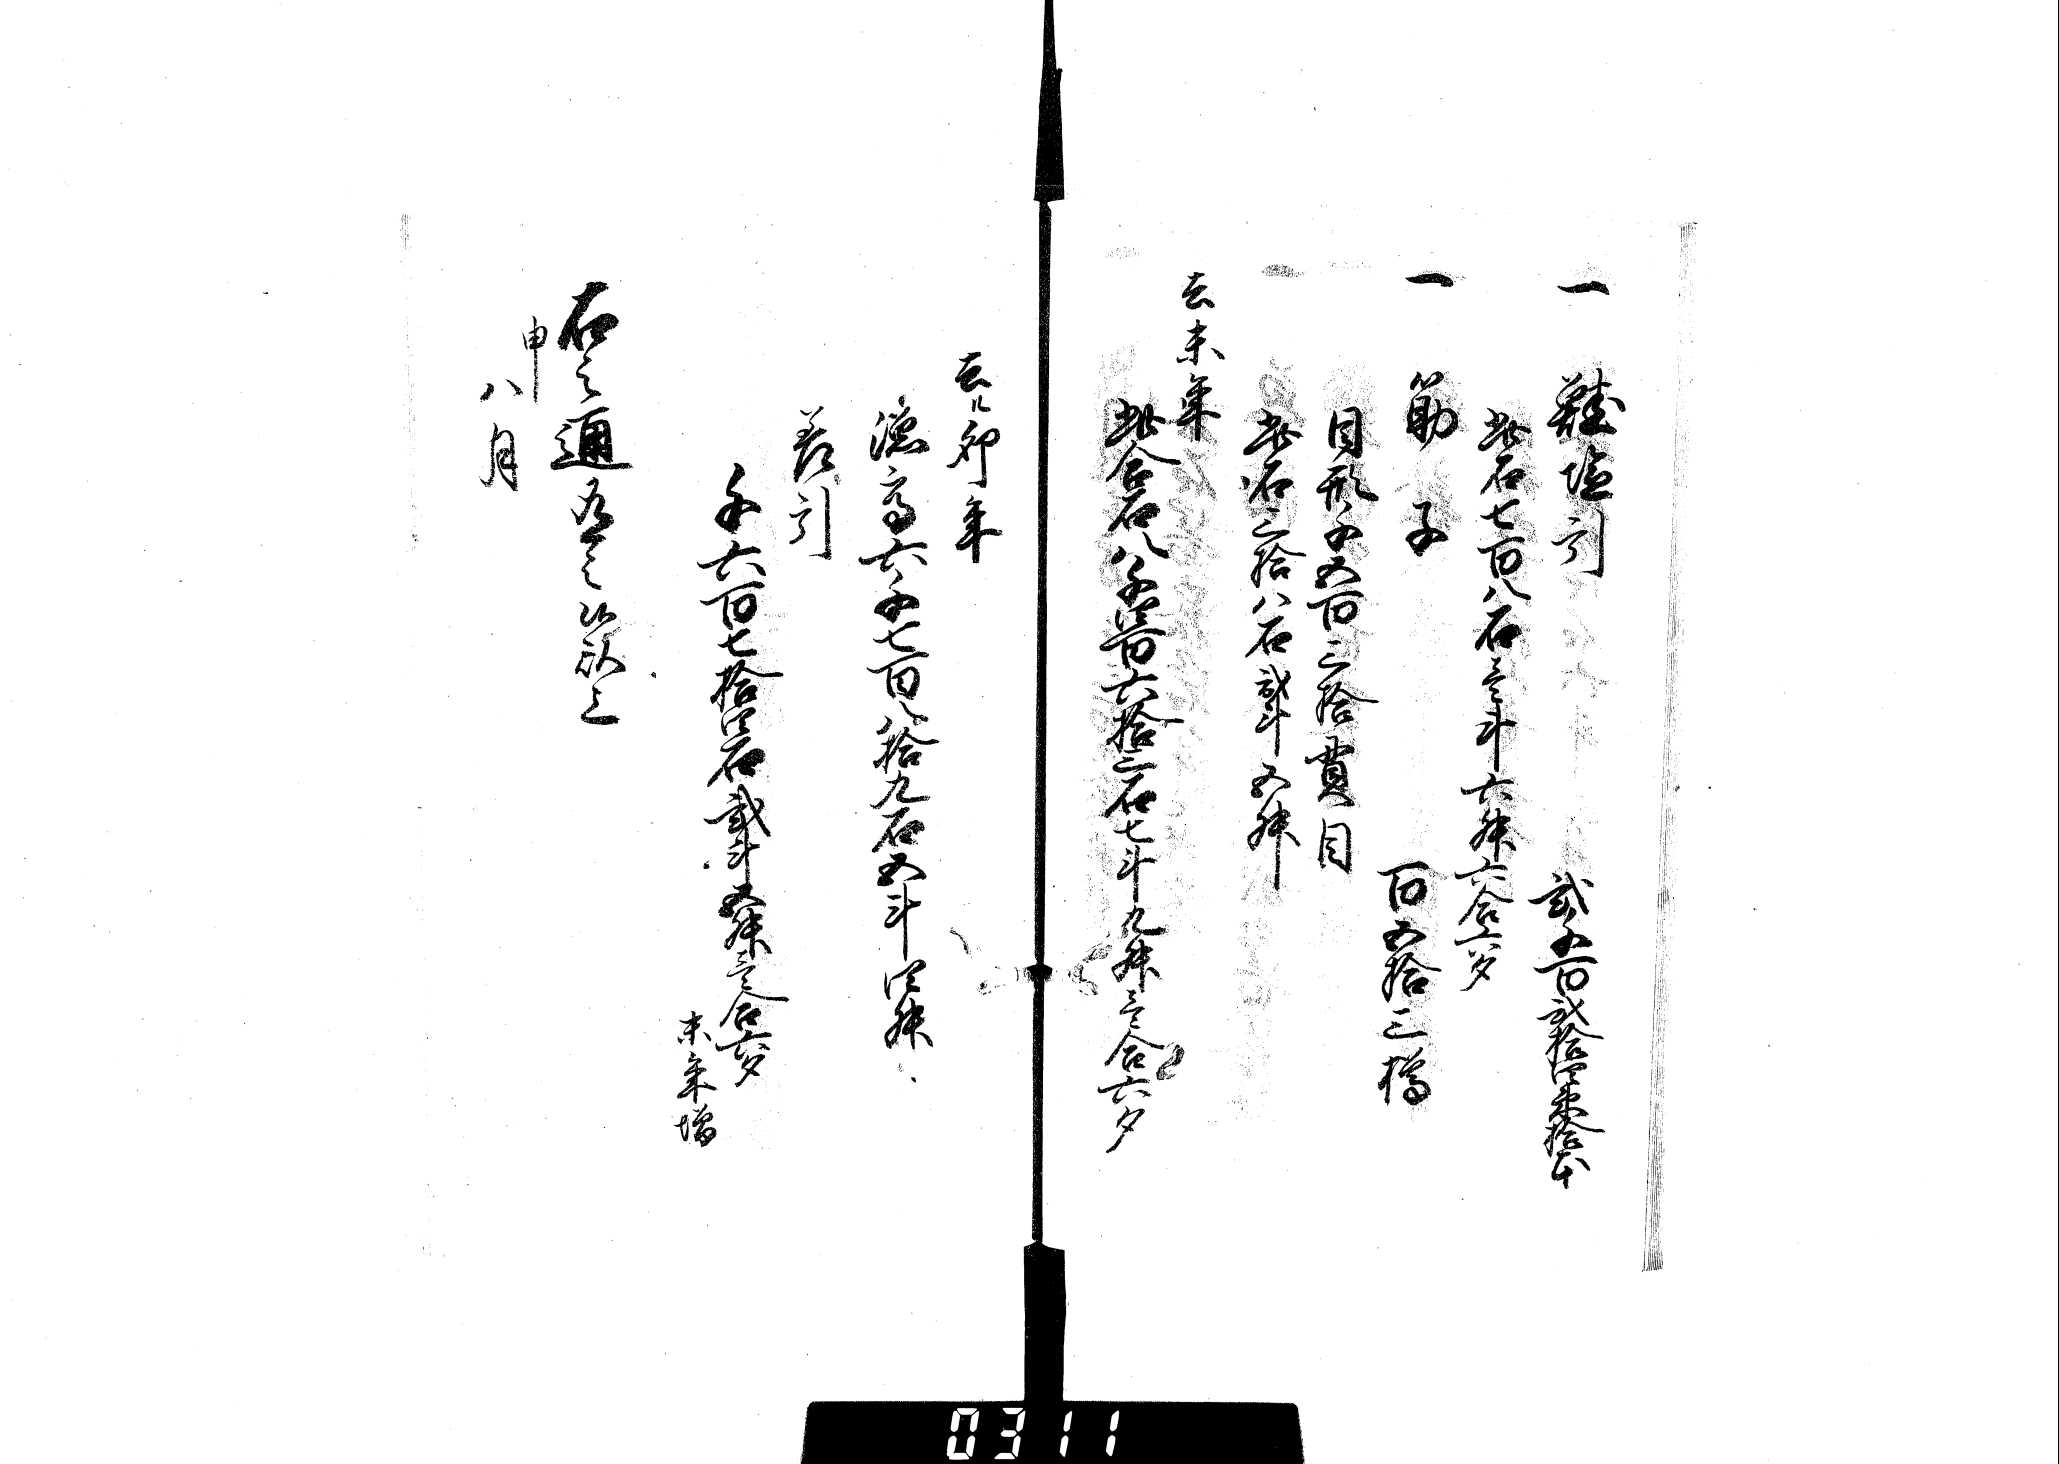 一 鮭塩引 弐千百弐拾四束拾本
此石七百八石壱斗六升六合六夕
一 筋子 百五拾三樽
目形千五百三拾貫目
此石三拾八石弐斗五升
去未年
此合石八千四百六拾三石七斗九升壱合六夕
去ル卯年
漁高六千七百八拾九石五斗四升
差引
千六百七拾四石弐斗五升壱合六夕
未年増
右之通有之候以上
申八月
0311